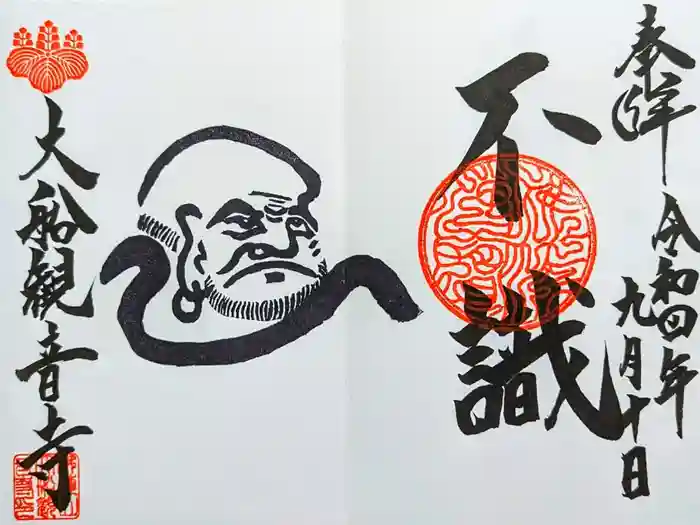 奉拝
令和四年
九月十日
不識
大船観音寺